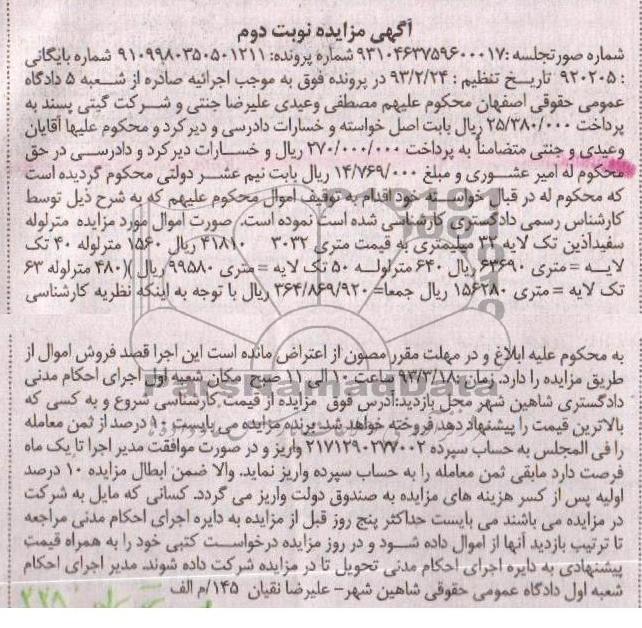 آگهی مزایده نوبت دوم
شماره صورتجلسه: ۹۳۱۰۴۶۳۷۵۹۶۰۰۰۱۷ شماره پرونده: ۹۱۰۹۹۸۰۳۵۰۵۰۱۲۱۱ شماره بایگانی
: ۹۲۰۲۰۵ تاریخ تنظیم : ۹۳/۲/۲۴ در پرونده فوق به موجب اجرائیه صادره از شعبه ۵ دادگاه
عمومی حقوقی اصفهان محکوم علیهم مصطفی وعیدی علیرضا جنتی و شرکت گیتی پسند به
پرداخت ۲۵/۳۸۰/۰۰۰ ریال بابت اصل خواسته و خسارات دادرسی و دیرکرد و محکوم علیها آقایان
وعیدی و جنتی متضامناً به پرداخت ۲۷۰/۰۰۰/۰۰۰ ریال و خسارات دیرکرد و دادرسی در حق
محکوم له امیر عشوری و مبلغ ۱۴/۷۶۹/۰۰۰ ریال بابت نیم عشر دولتی محکوم گردیده است
که محکوم له در قبال خواسته خود اقدام به توقیف اموال محکوم علیهم که به شرح ذیل توسط
کارشناس رسمی دادگستری کارشناسی شده است نموده است. صورت اموال مورد مزایده مترلوله
سفیدآذین تک لایه ۳۲ میلیمتری به قیمت متری ۳۰۳۲ ۴۱۸۱۰ ریال ۱۵۶۰ مترلوله ۴۰ تک
لایه = متری ۶۳۶۹۰ ریال ۶۴۰ مترلوله ۵۰ تک لایه = متری ۹۹۵۸۰ ریال )(۴۸۰ مترلوله ۶۳
تک لایه = متری ۱۵۶۲۸۰ ریال جمعا= ۳۶۴/۸۶۹/۹۲۰ ریال با توجه به اینکه نظریه کارشناسی
به محکوم علیه ابلاغ و در مهلت مقرر مصون از اعتراض مانده است این اجرا قصد فروش اموال از
طریق مزایده را دارد. زمان :۹۳/۳/۱۸ ساعت ۱۰ الی ۱۱ صبح مکان شعبه اول اجرای احکام مدنی
دادگستری شاهین شهر محل بازدید:آدرس فوق مزایده از قیمت کارشناسی شروع و به کسی که
بالاترین قیمت را پیشنهاد دهد فروخته خواهد شد برنده مزایده می بایست ۱۰ درصد از ثمن معامله
را فی المجلس به حساب سپرده ۲۱۷۱۲۹۰۲۷۷۰۰۲ واریز و در صورت موافقت مدیر اجرا تا یک ماه
فرصت دارد مابقی ثمن معامله را به حساب سپرده واریز نماید. والا ضمن ابطال مزایده ۱۰ درصد
اولیه پس از کسر هزینه های مزایده به صندوق دولت واریز می گردد. کسانی که مایل به شرکت
در مزایده می باشند می بایست حداکثر پنج روز قبل از مزایده به دایره اجرای احکام مدنی مراجعه
تا ترتیب بازدید آنها از اموال داده شود و در روز مزایده درخواست کتبی خود را به همراه قیمت
پیشنهادی به دایره اجرای احکام مدنی تحویل تا در مزایده شرکت داده شوند. مدیر اجرای احکام
شعبه اول دادگاه عمومی حقوقی شاهین شهر– علیرضا نقیان ۱۴۵/م الف
ParsNamadData